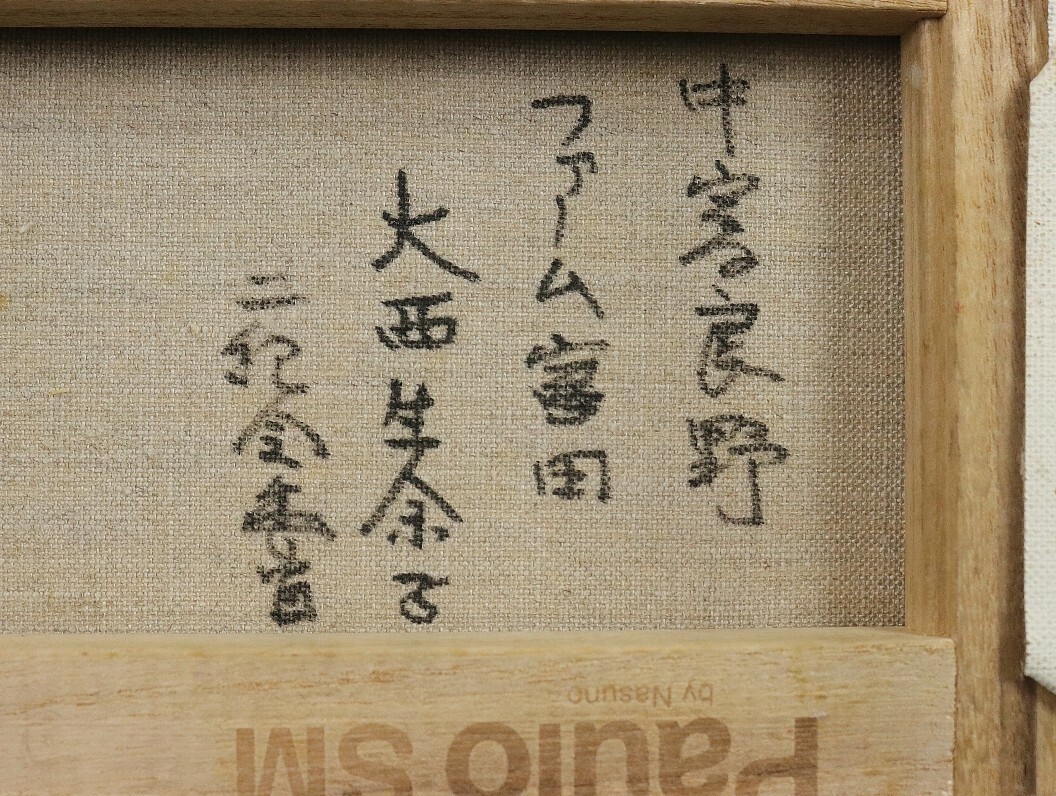 中富良野
ファーム富田
大西生余子
二紀会委員
by Nasuno
Paulo SM